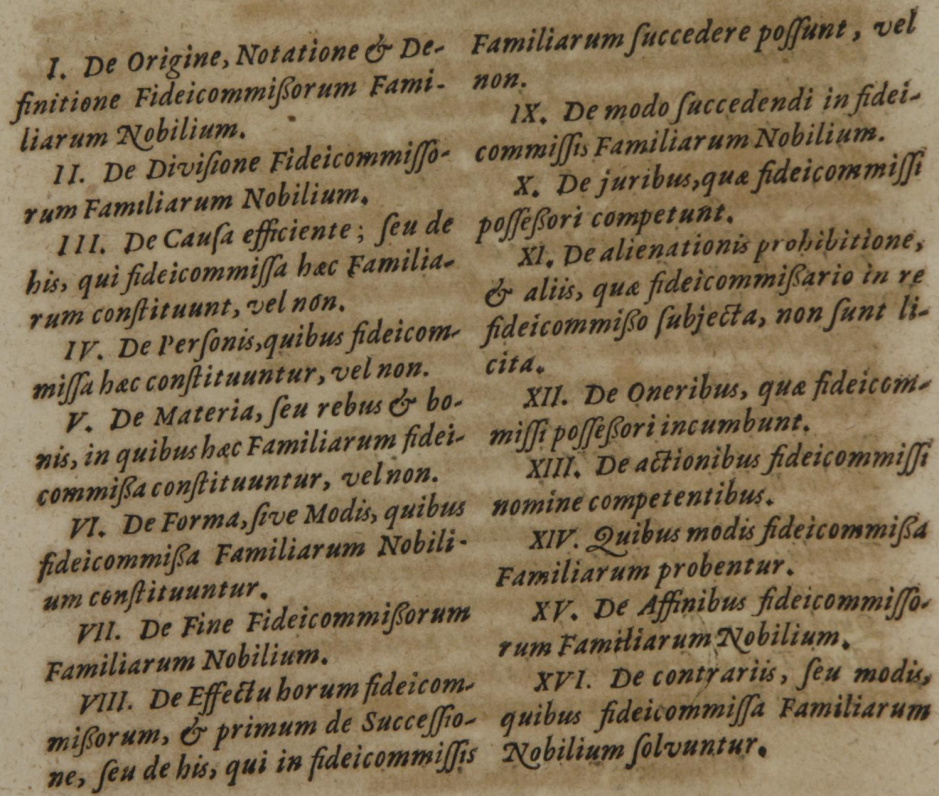 I. De Origine, Notatione & De-
finitione Fideicommißorum Fami-
liarum Nobilium.
II. De Diviſione Fideicommiſſo-
rum Familiarum Nobilium.
III. De Cauſa efficiente; ſeu de
his, qui fideicommiſſa hæc Familia-
rum conſtituunt, vel non.
IV. De Perſonis, quibus fideicom-
miſſa hæc conſtituuntur, vel non.
V. De Materia, ſeu rebus & bo-
nis, in quibus hæc Familiarum fidei-
commißa conſtituuntur, vel non.
VI. De Forma, ſive Modis, quibus
fideicommißa Familiarum Nobili-
um conſtituuntur.
VII. De Fine Fideicommißorum
Familiarum Nobilium.
VIII. De Effectu horum fideicom-
mißorum, & primum de Succeſſio-
ne, ſeu de his, qui in fideicommiſſis
Familiarum ſuccedere poſſunt, vel
non.
IX. De modo ſuccedendi in fidei-
commiſſis Familiarum Nobilium.
X. De juribus, quæ fideicommiſſi
poſſeßori competunt.
XI. De alienationis prohibitione,
& aliis, quæ fideicommißario in re
fideicommißo ſubjecta, non ſunt li-
cita.
XII. De Oneribus, quæ fideicom-
miſſi poſſeßori incumbunt.
XIII. De actionibus fideicommiſſi
nomine competentibus.
XIV. Quibus modis fideicommißa
Familiarum probentur.
XV. De Affinibus fideicommiſſo-
rum Familiarum Nobilium.
XVI. De contrariis, ſeu modis,
quibus fideicommiſſa Familiarum
Nobilium ſolvuntur.